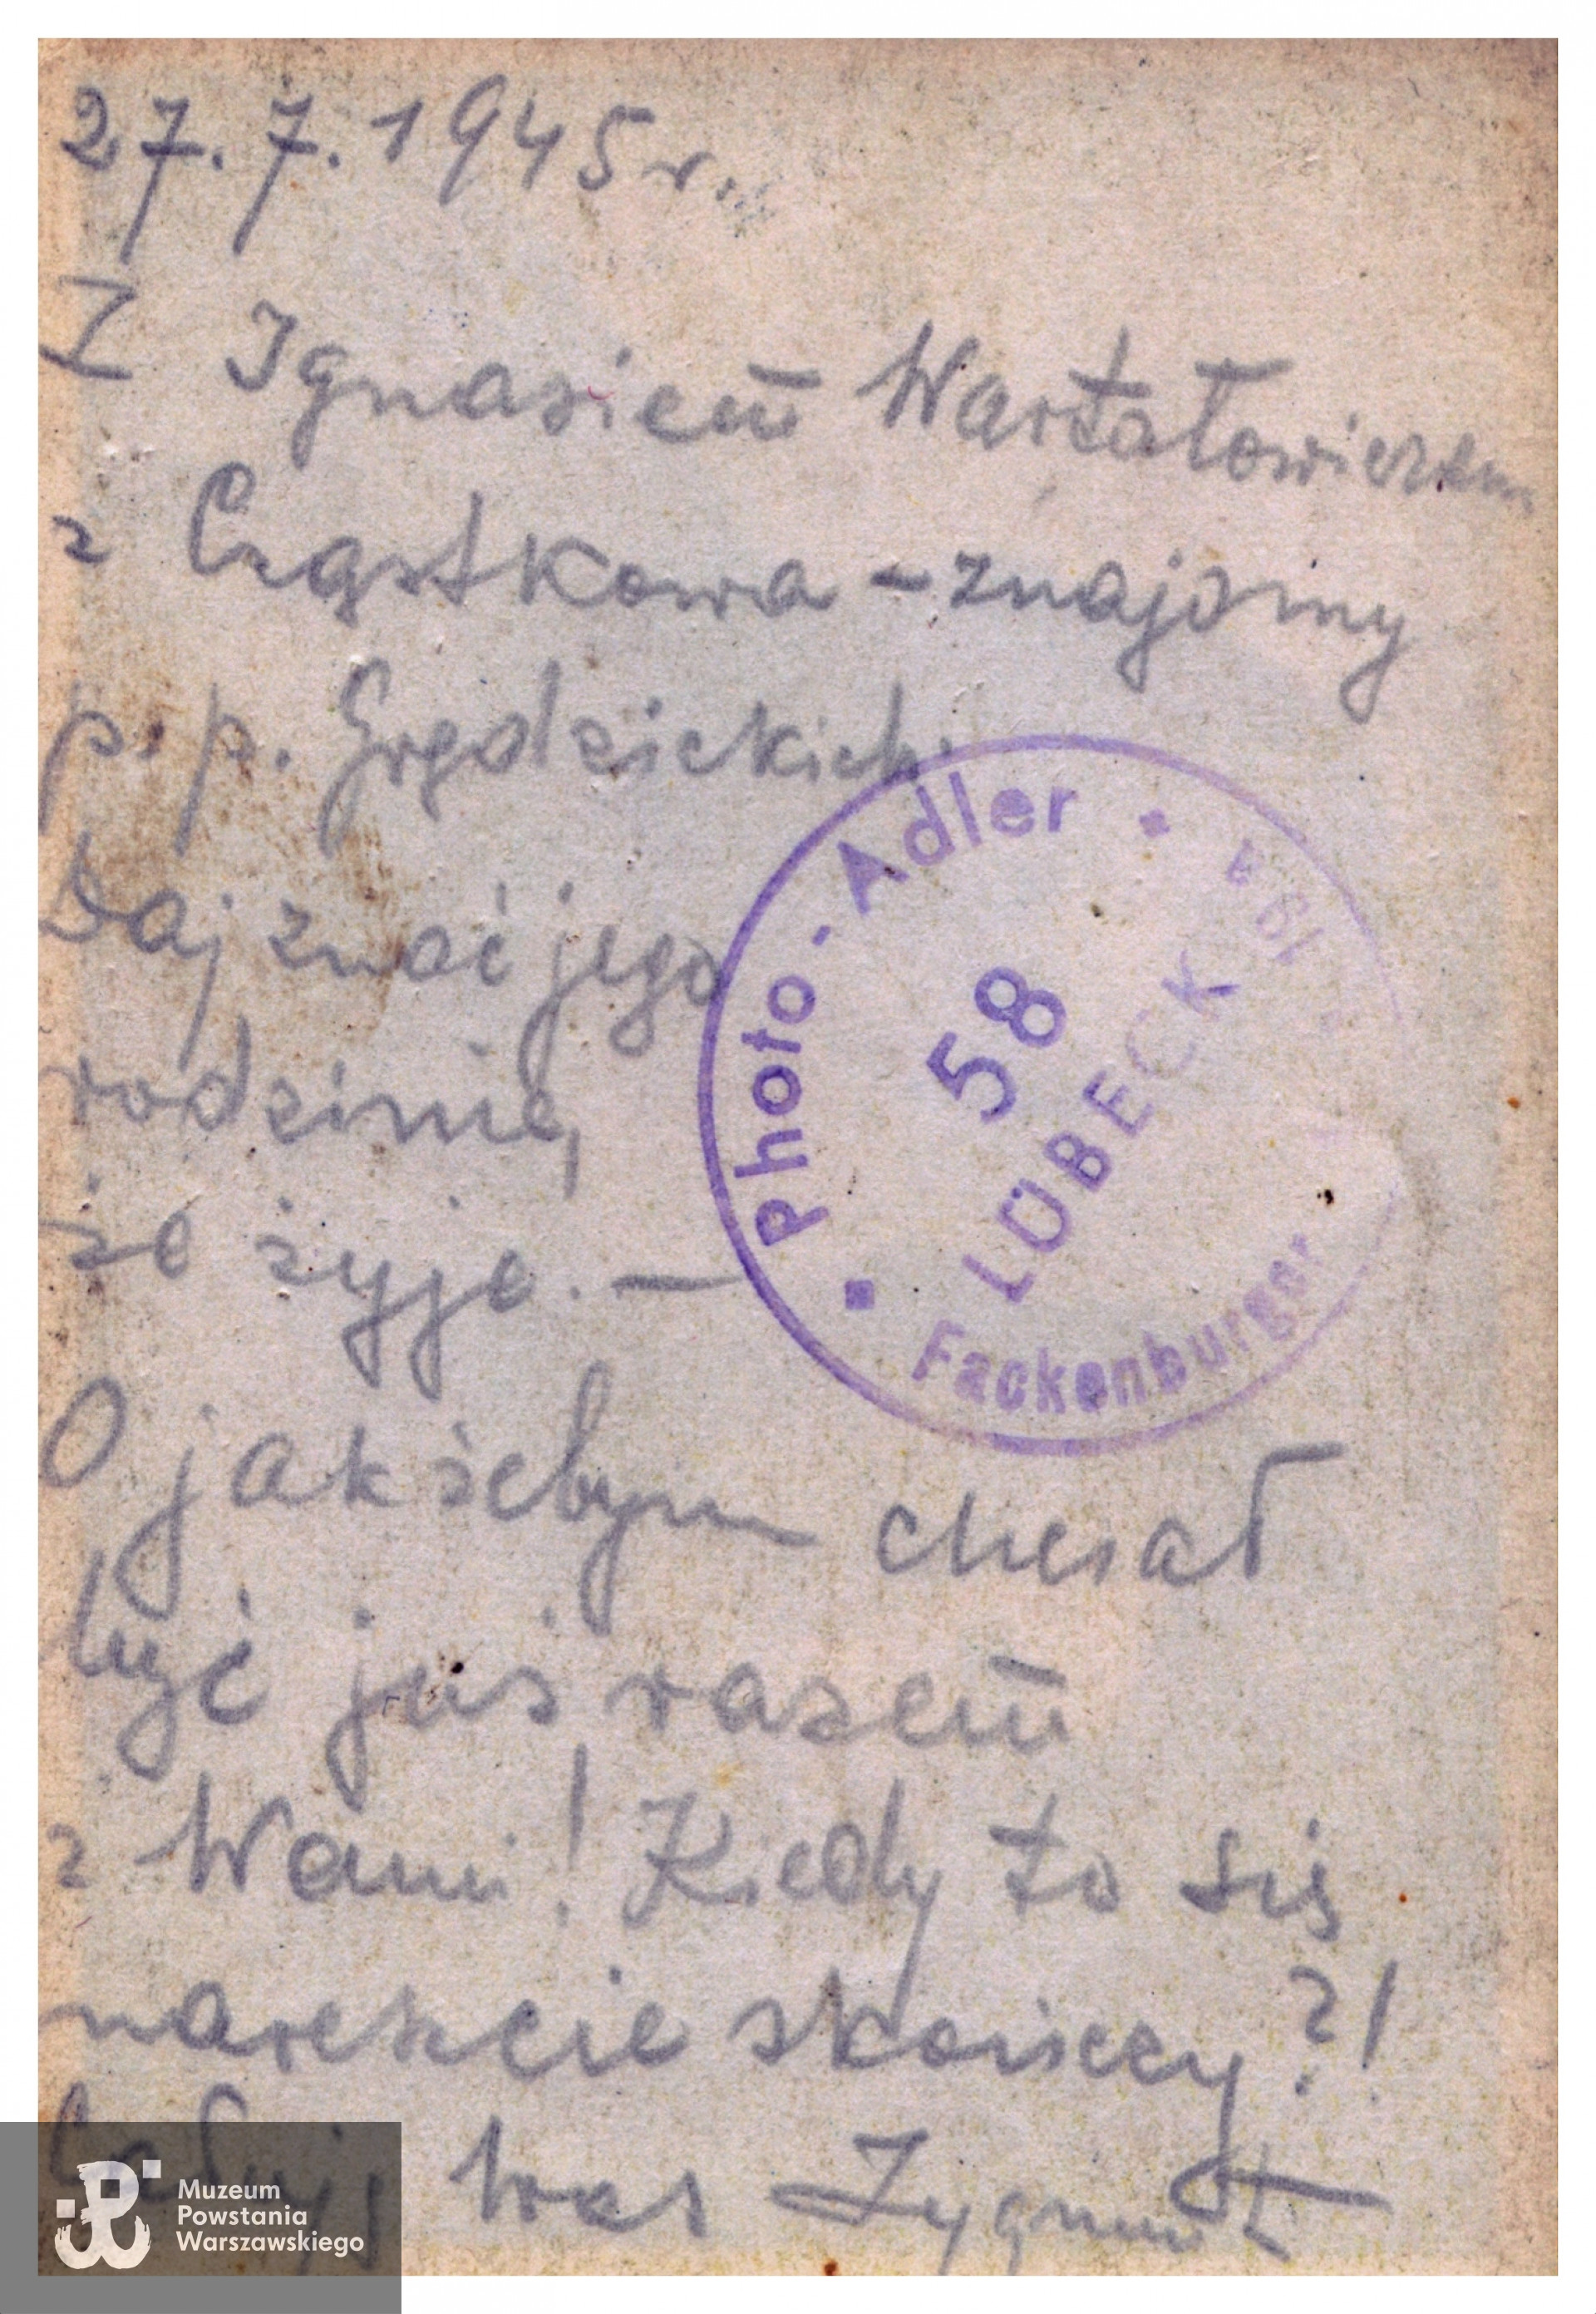 27.7.1945 r.
Z Ignasiem
z Cząstkowa - znajomy
p. p.
Daj znać jego
rodzinie,
że żyje. —
O jakżebym chciał
być już razem
z Wami! Kiedy to się
nareszcie skończy?!
Całuję Was Zygmunt
Photo-Adler
58
LÜBECK
Fackenburger
Muzeum
Powstania
Warszawskiego